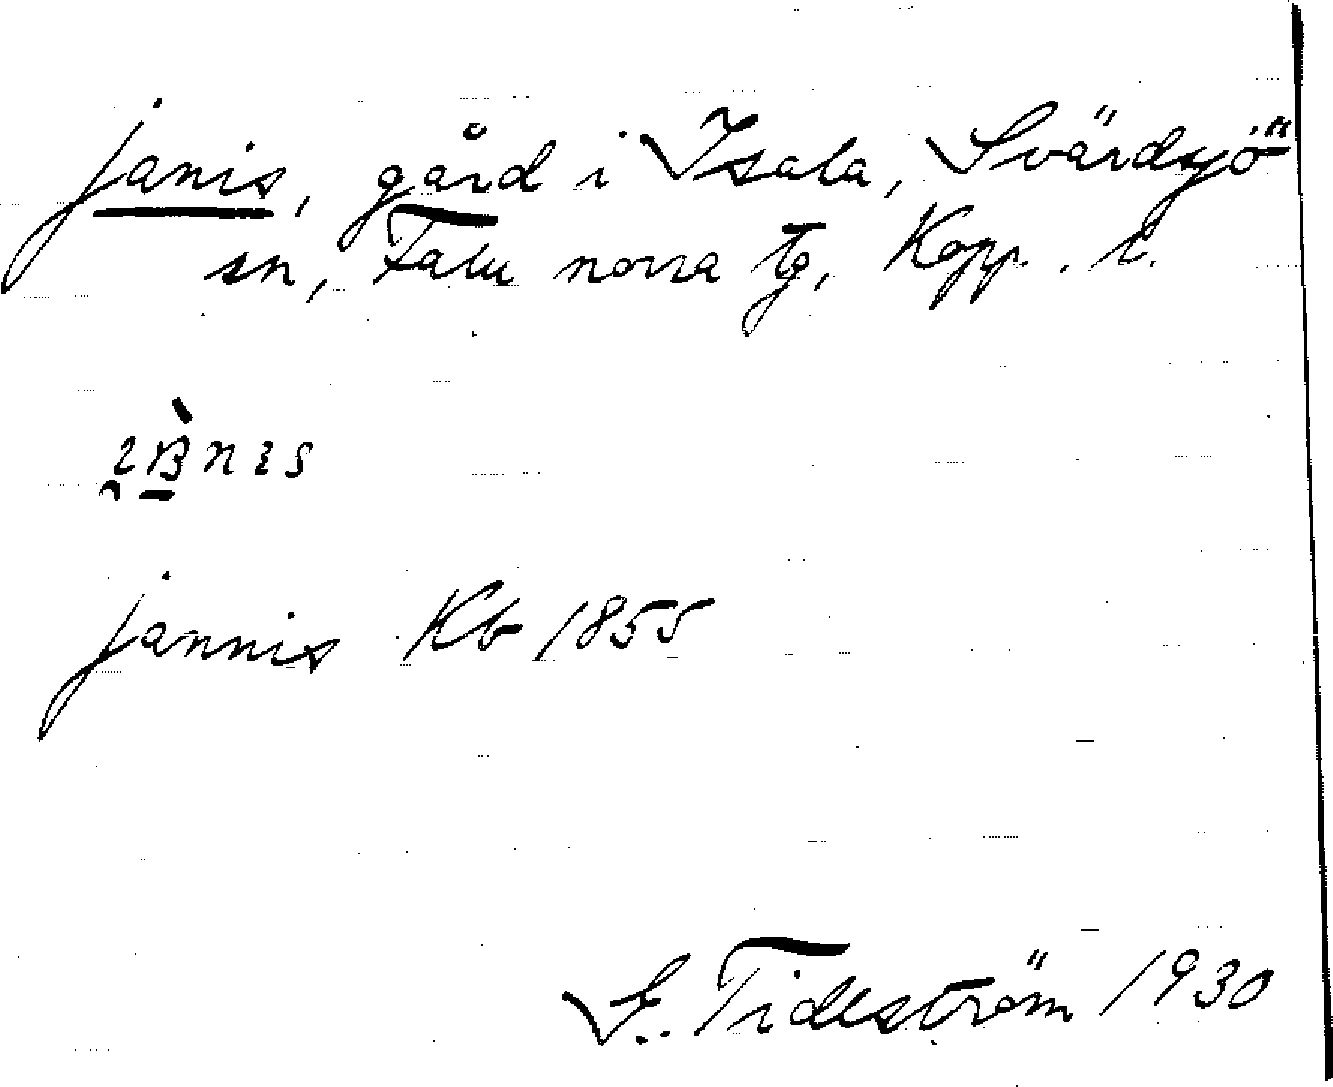 Janis, gård i Isala, Svärdsjö
sn, Falu norra tg, Kopp. l.
Jannis Kb 1855
G. Tideström 1930